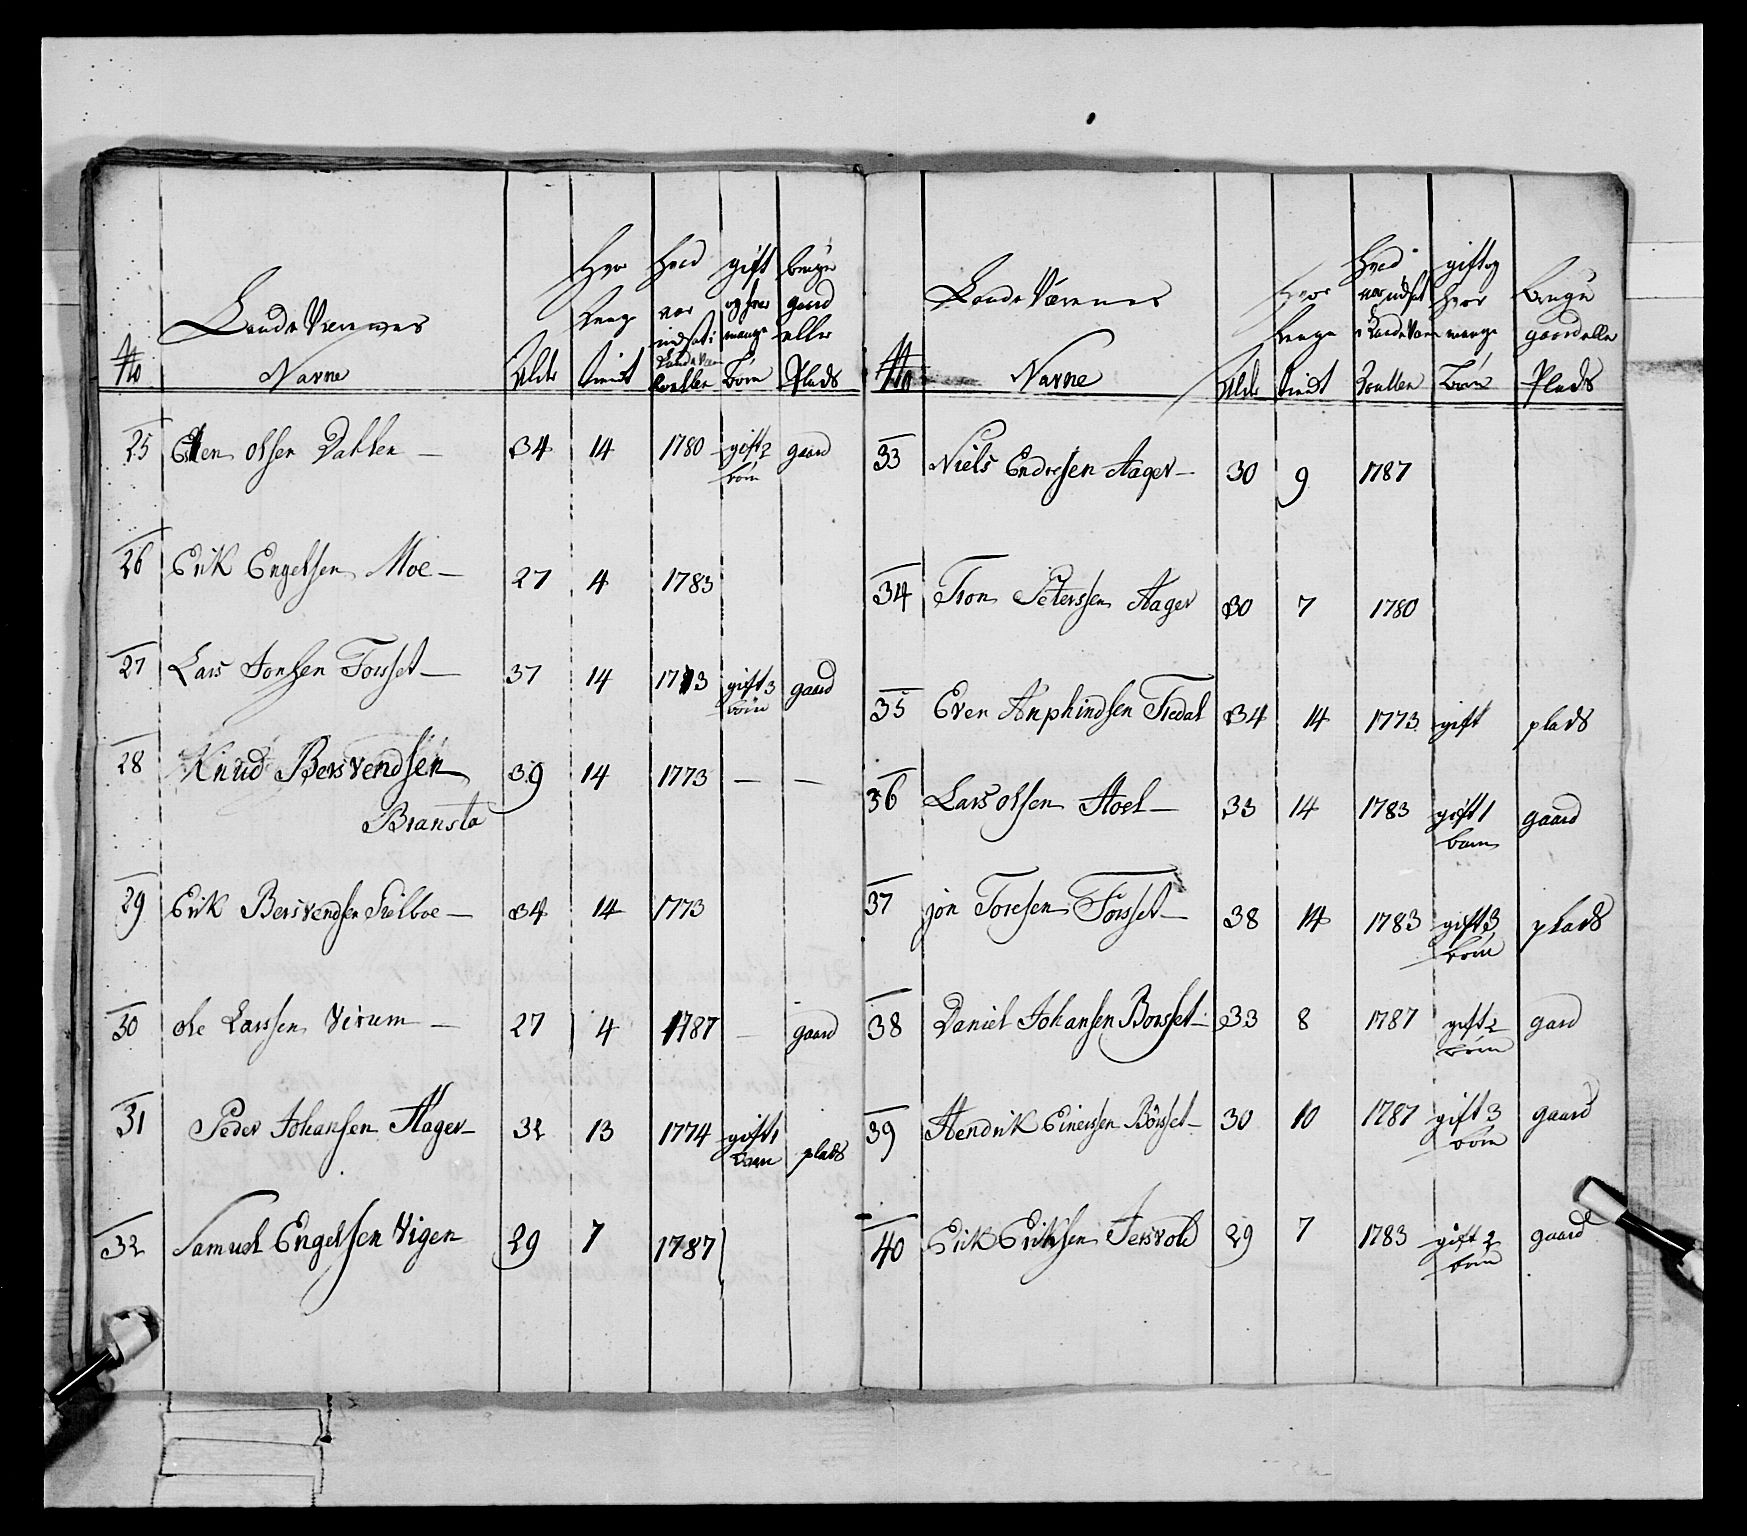 No
Lande Værnes
Navne
Alder
Hvor
længe
tient
Hvad
aar
indsat i
Lande Værn
Roullen
gift
og hvor
mange
Børn
bruger
gaard
eller
Plads
25 Elen Olsen Dahlen — 34 14 1780 gift 2 gaard
børn
26 Erik Engelsen Moe — 27 4 1783
27 Lars Jonsen Forset — 37 14 1773 gift 3 gaard
børn
28 Knud Bersvendsen 39 14 1773 — —
Bransta
29 Erik Bersvendsen Fielboe — 34 14 1773
30 Ole Larssen Virum — 27 4 1787 — gaard
31 Peder Johansen Hager — 32 13 1774 gift 1 plads
barn
32 Samuel Engelsen Vigen 29 7 1787
No
Lande Værenes
Navne
Alder
Hvor
længe
tient
Hvad
aar indsat
i Lande Værn
Roullen
gift og
hvor
mange
børn
bruger
gaard eller
Plads
33 Niels Endresen Hager — 30 9 1787
34 Tron Peterssen Hager 30 7 1780
35 Even Anphindsen Tredal 34 14 1773 gift plads
36 Lars Olsen Hoel — 33 14 1783 gift 1 gaard
barn
37 jon Toresen Forset — 38 14 1783 gift 3 plads
børn
38 Daniel Johansen Borsset — 33 8 1787 gift 2 gard
børn
39 Hendrik Einersen Börset — 30 10 1787 gift 3 gaard
børn
40 Erik Eriksen Jersvold 29 7 1783 gift 2 gaard
børn